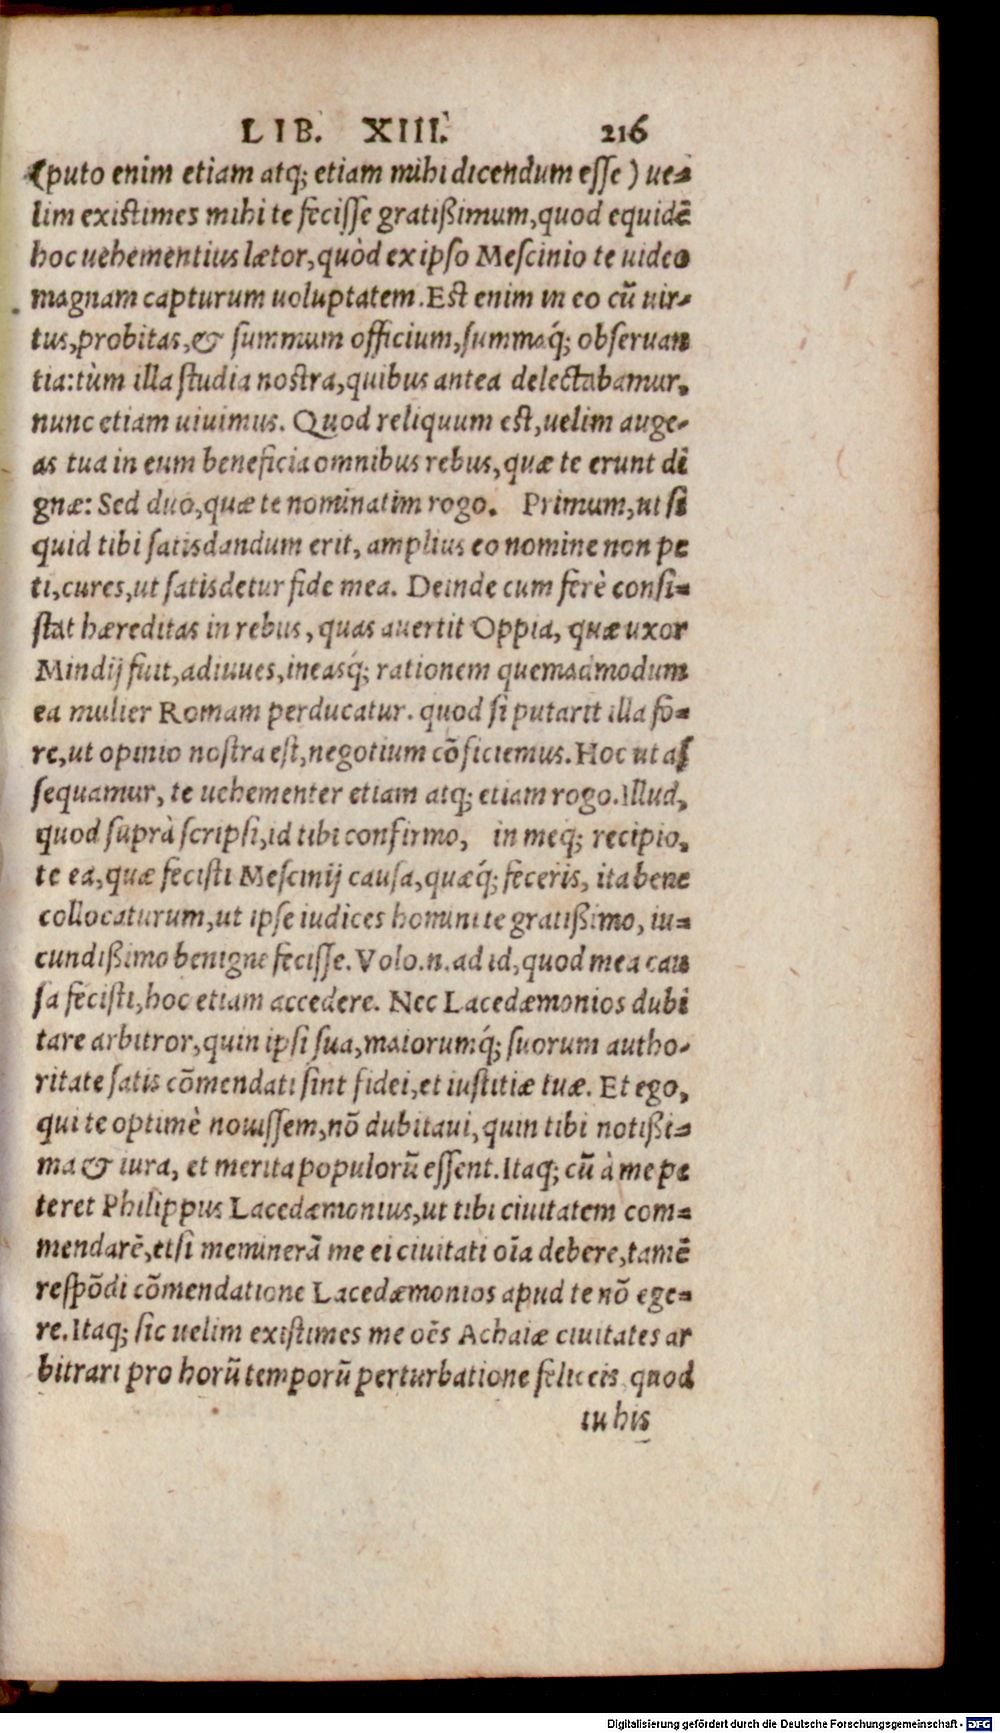 LIB. XIII. 216
(puto enim etiam atq; etiam mihi dicendum eſſe) ue-
lim exiſtimes mihi te feciſſe gratißimum, quod equidē
hoc uehementius lætor, quòd ex ipſo Meſcinio te uideo
magnam capturum uoluptatem. Eſt enim in eo cū uir-
tus, probitas, & ſummum officium, ſummaq́; obſeruan
tia: tùm illa ſtudia noſtra, quibus antea delectabamur,
nunc etiam uiuimus. Quod reliquum eſt, uelim auge-
as tua in eum beneficia omnibus rebus, quæ te erunt di
gnæ: Sed duo, quæ te nominatim rogo. Primum, ut ſi
quid tibi ſatisdandum erit, amplius eo nomine non pe
ti, cures, ut ſatisdetur fide mea. Deinde cum ferè conſi-
ſtat hæreditas in rebus, quas auertit Oppia, quæ uxor
Mindij fuit, adiuues, ineasq́; rationem quemadmodum
ea mulier Romam perducatur. quod ſi putarit illa fo-
re, ut opinio noſtra eſt, negotium cōficiemus. Hoc ut aſ
ſequamur, te uehementer etiam atq; etiam rogo. Illud,
quod ſuprà ſcripſi, id tibi confirmo, in meq; recipio,
te ea, quæ feciſti Meſcinij cauſa, quæq́; feceris, ita bene
collocaturum, ut ipſe iudices homini te gratißimo, iu-
cundißimo benigne feciſſe. Volo.n. ad id, quod mea cau
ſa feciſti, hoc etiam accedere. Nec Lacedæmonios dubi
tare arbitror, quin ipſi ſua, maiorumq́; ſuorum autho-
ritate ſatis cōmendati ſint fidei, et iuſtitiæ tuæ. Et ego,
qui te optimè nouiſſem, nō dubitaui, quin tibi notißi-
ma & iura, et merita populorū eſſent. Itaq; cū à me pe
teret Philippus Lacedæmonius, ut tibi ciuitatem com-
mendarē, etſi meminerā me ei ciuitati oīa debere, tamē
reſpōdi cōmendatione Lacedæmonios apud te nō ege-
re. Itaq; ſic uelim exiſtimes me oēs Achaiæ ciuitates ar
bitrari pro horū temporū perturbatione felices, quod
iu his
Digitalisierung gefördert durch die Deutsche Forschungsgemeinschaft - DFG